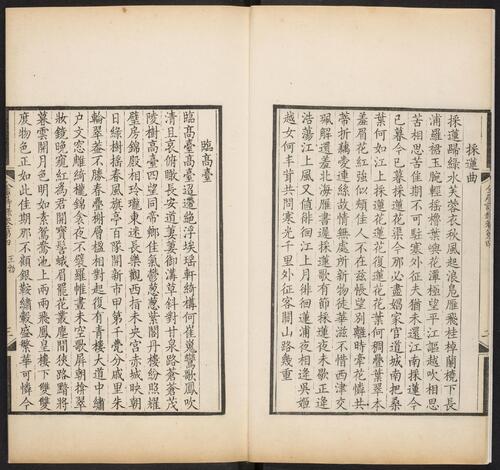 採蓮曲
採蓮歸綠水芙蓉衣秋風起浪鳧雁飛桂棹蘭橈下長
浦羅裙玉腕輕搖櫓葉嶼花潭極望平江謳越吹相思
苦相思苦佳期不可駐塞外征夫猶未還江南採蓮今
已暮今已暮採蓮花渠今那必盡娼家官道城南把桑
葉何如江上採蓮花蓮花復蓮花花葉何稠疊葉翠本
羞眉花紅強似頰佳人不在茲悵望別離時牽花憐共
蒂折藕愛連絲故情無處所新物徒華滋不惜西津交
珮解還羞北海雁書遲採蓮歌有節採蓮夜未歇正逢
浩蕩江上風又值徘徊江上月徘徊蓮浦夜相逢吳姬
越女何丰茸共問寒光千里外征客關山路幾重
臨高臺
臨高臺高臺迢遞絕浮埃瑤軒綺構何崔嵬鸞歌鳳吹
清且哀俯瞰長安道萋萋御溝草斜對甘泉路蒼蒼茂
陵樹高臺四望同帝鄉佳氣鬱蔥蔥紫閣丹樓紛照耀
璧房錦殿相玲瓏東迷長樂觀西指未央宮赤城映朝
日綠樹搖春風旗亭百隊開新市甲第千甍分戚里朱
輪翠蓋不勝春疊榭層楹相對起復有青樓大道中繡
戶文窗雕綺櫳錦衾夜不襞羅帷晝未空歌屏朝掩翠
妝鏡晚窺紅為君開寶髻蛾眉罷花叢塵間狹路黯將
暮雲開月色明如素鴛鴦池上兩兩飛鳳凰樓下雙雙
度物色正如此佳期那不顧銀鞍繡轂盛繁華可憐今